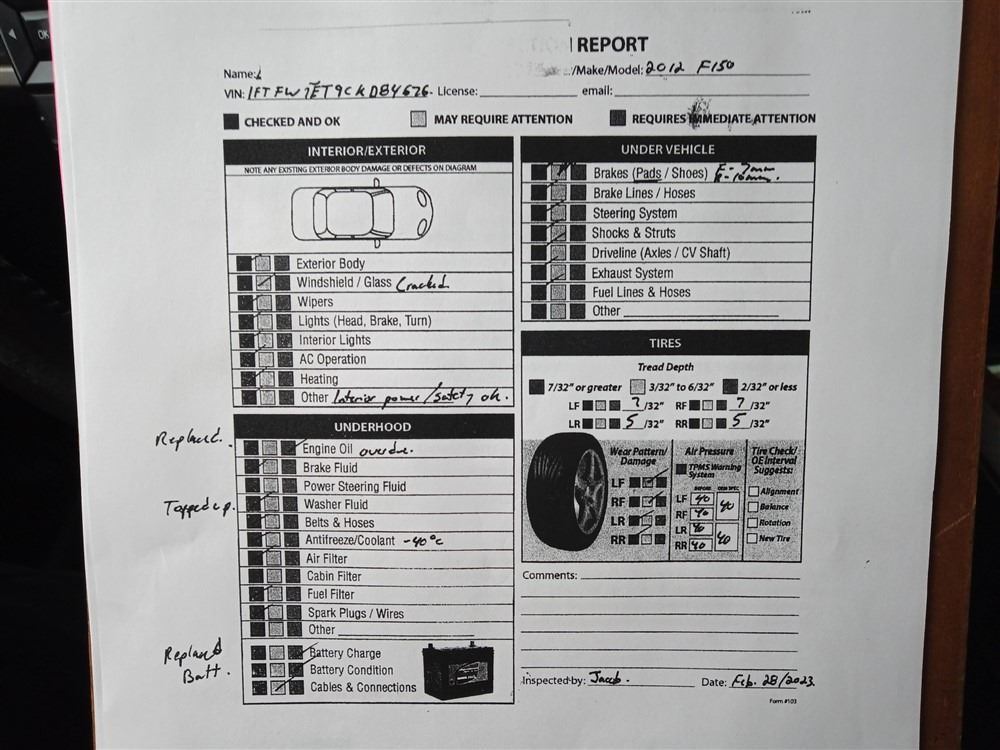 OK
REPORT
Name:
/Make/Model: 2012 F150
VIN: 1FTFW1ET9CKD84676. License: email:
CHECKED AND OK MAY REQUIRE ATTENTION REQUIRES IMMEDIATE ATTENTION
INTERIOR/EXTERIOR
NOTE ANY EXISTING EXTERIOR BODY DAMAGE OR DEFECTS ON DIAGRAM
Exterior Body
Windshield / Glass Cracked
Wipers
Lights (Head, Brake, Turn)
Interior Lights
AC Operation
Heating
Other Interior power/safety ok.
UNDERHOOD
Replaced. Engine Oil overdue.
Brake Fluid
Power Steering Fluid
Topped up. Washer Fluid
Belts & Hoses
Antifreeze/Coolant -40°c
Air Filter
Cabin Filter
Fuel Filter
Spark Plugs / Wires
Other
Replaced Batt.
Battery Charge
Battery Condition
Cables & Connections
UNDER VEHICLE
Brakes (Pads / Shoes) F - 7mm
R - 10mm.
Brake Lines / Hoses
Steering System
Shocks & Struts
Driveline (Axles / CV Shaft)
Exhaust System
Fuel Lines & Hoses
Other
TIRES
Tread Depth
7/32" or greater 3/32" to 6/32" 2/32" or less
LF 7/32" RF 7/32"
LR 5/32" RR 5/32"
Wear Pattern/ Damage
LF
RF
LR
RR
Air Pressure
TPMS Warning System
BEFORE OEM SPEC
LF 40 40
RF 40
LR 40 40
RR 40
Tire Check/ OE Interval Suggests:
Alignment
Balance
Rotation
New Tire
Comments:
Inspected by: Jacob. Date: Feb. 28/2023.
Form #103